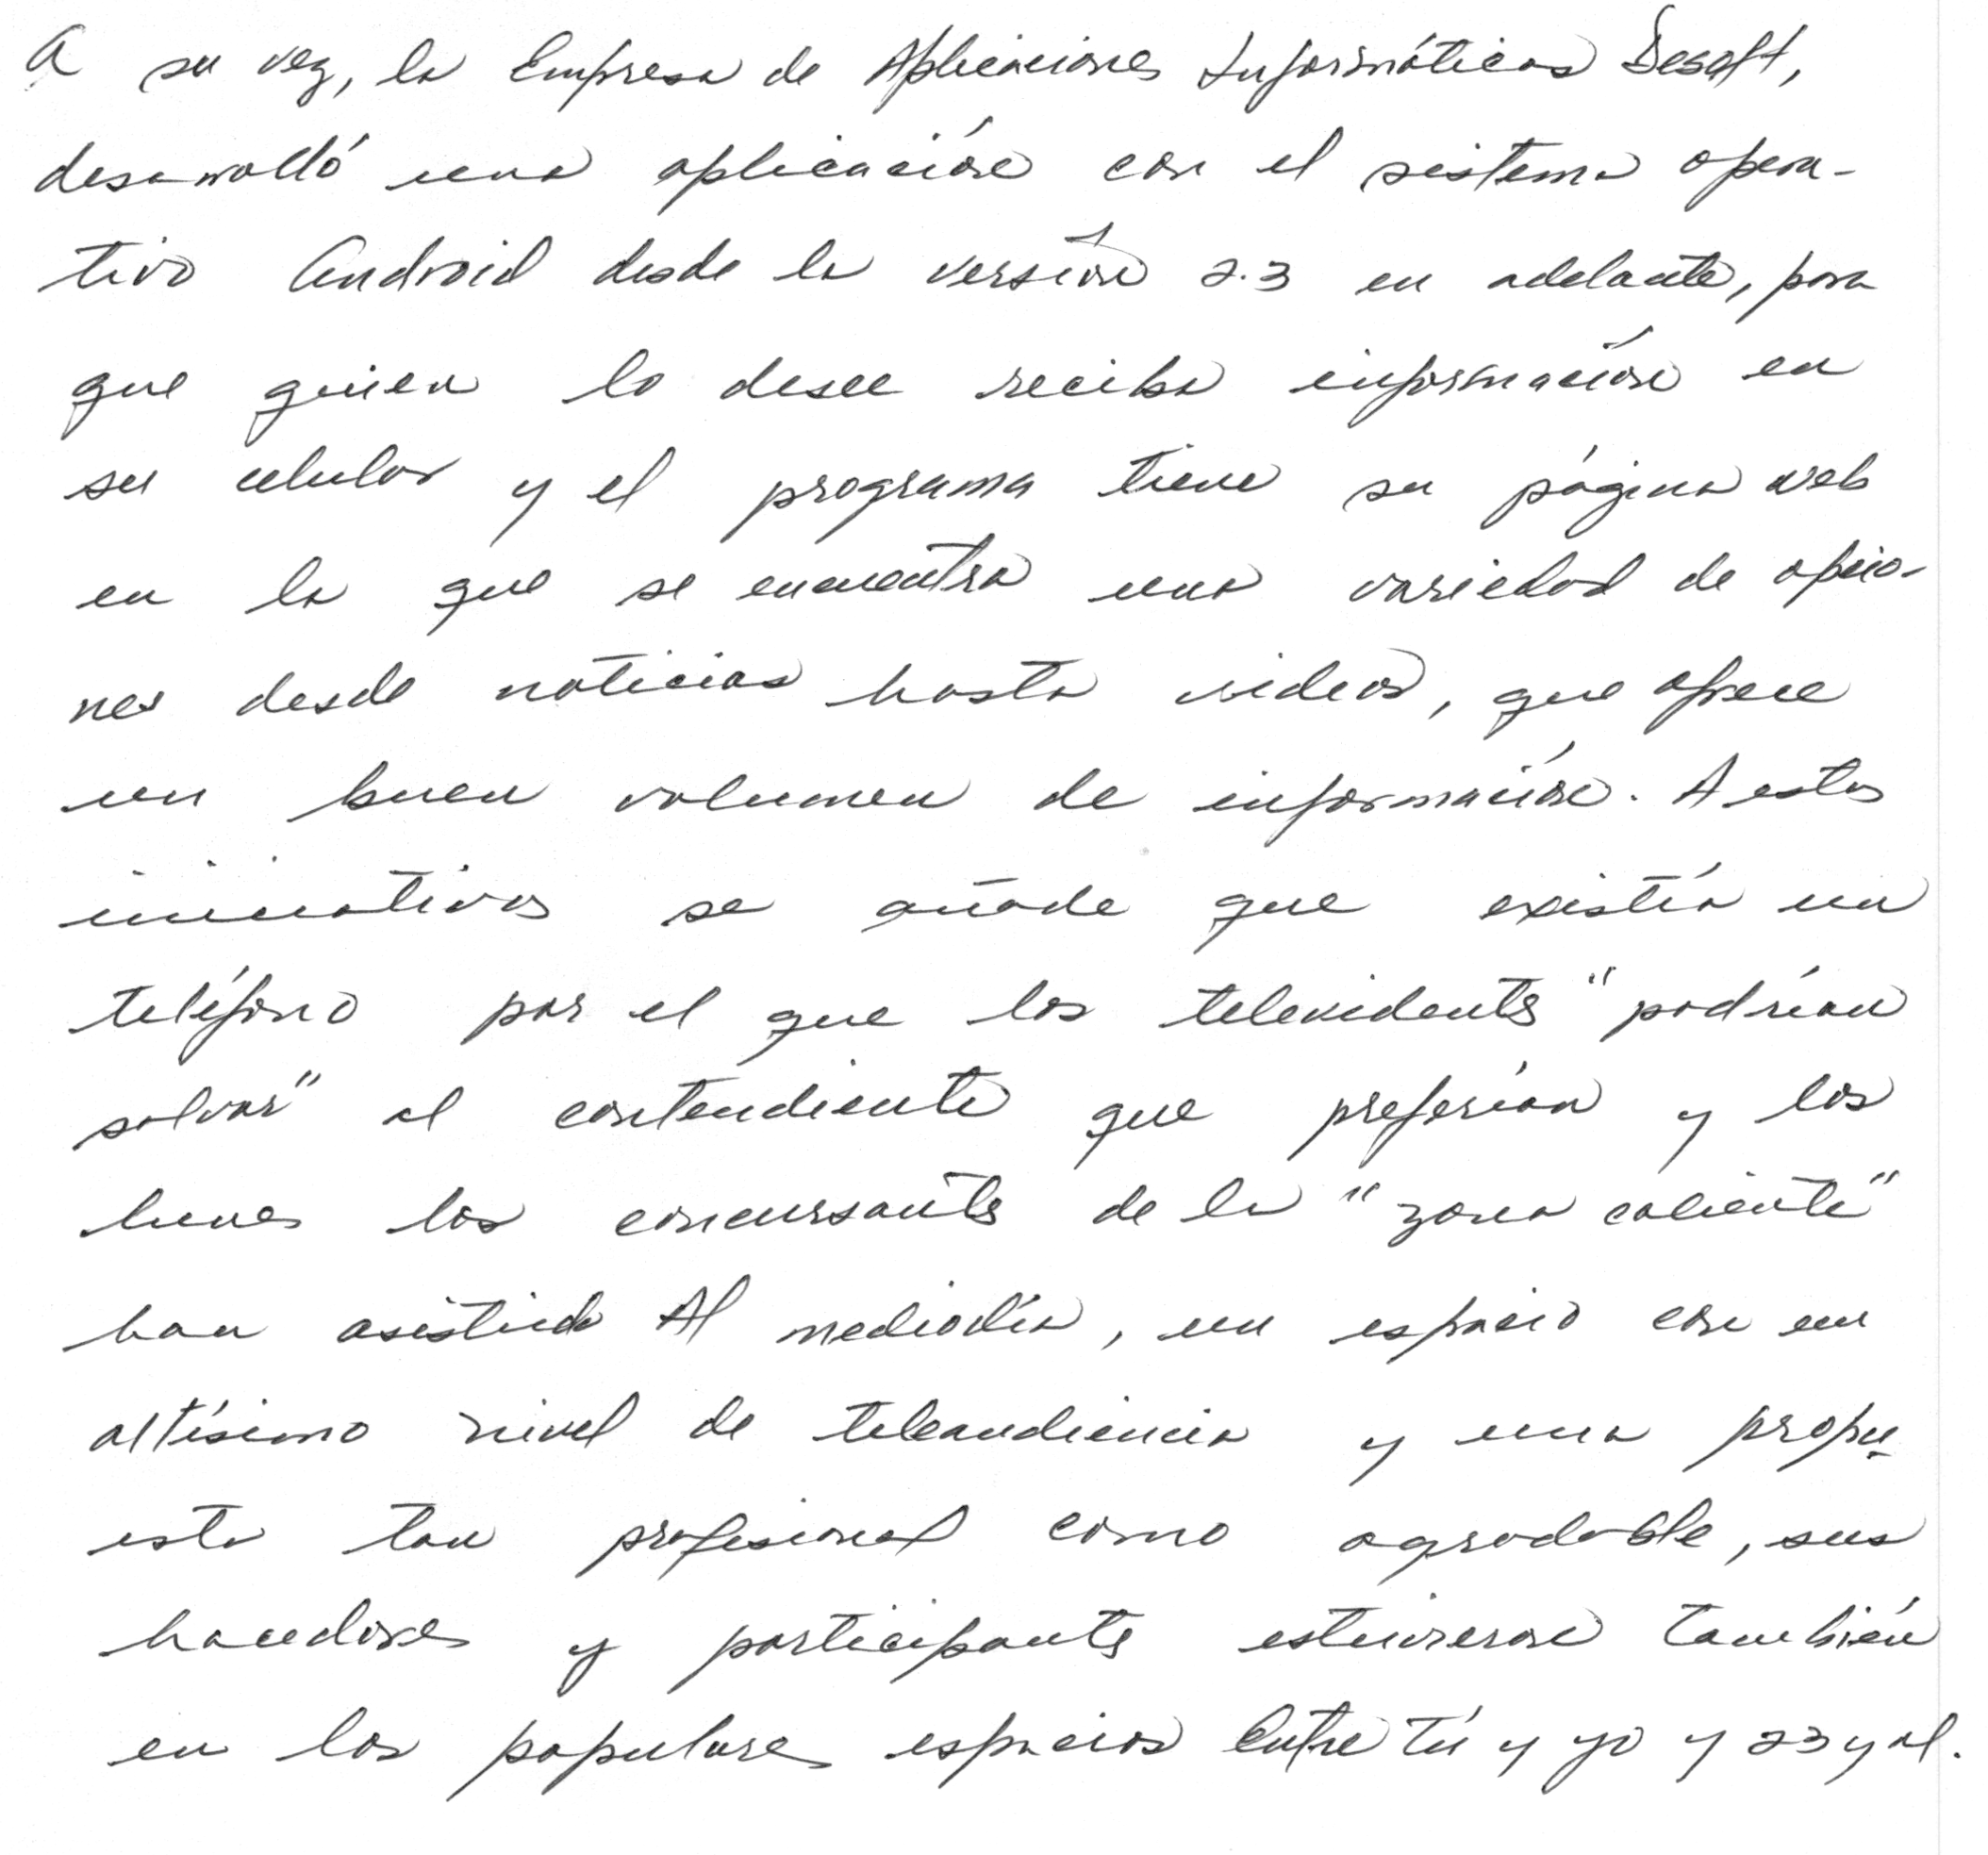 A su vez, la Empresa de Aplicaciones Informáticas Desoft,
desarrolló una aplicación con el sistema opera-
tivo Android desde la versión 2.3 en adelante, para
que quien lo desee reciba información en
su celular y el programa tiene su página web
en la que se encuentra una variedad de opcio-
nes desde noticias hasta videos, que ofrece
un buen volumen de información. A estas
iniciativas se añade que existía un
teléfono por el que los televidentes "podrían
salvar" al contendiente que preferían y los
lunes los concursantes de la "zona caliente"
han asistido Al mediodía, un espacio con un
altísimo nivel de teleaudiencia y una propu-
esta tan profesional como agradable, sus
hacedores y participantes estuvieron también
en los populares espacios Entre tú y yo y 23 y M.